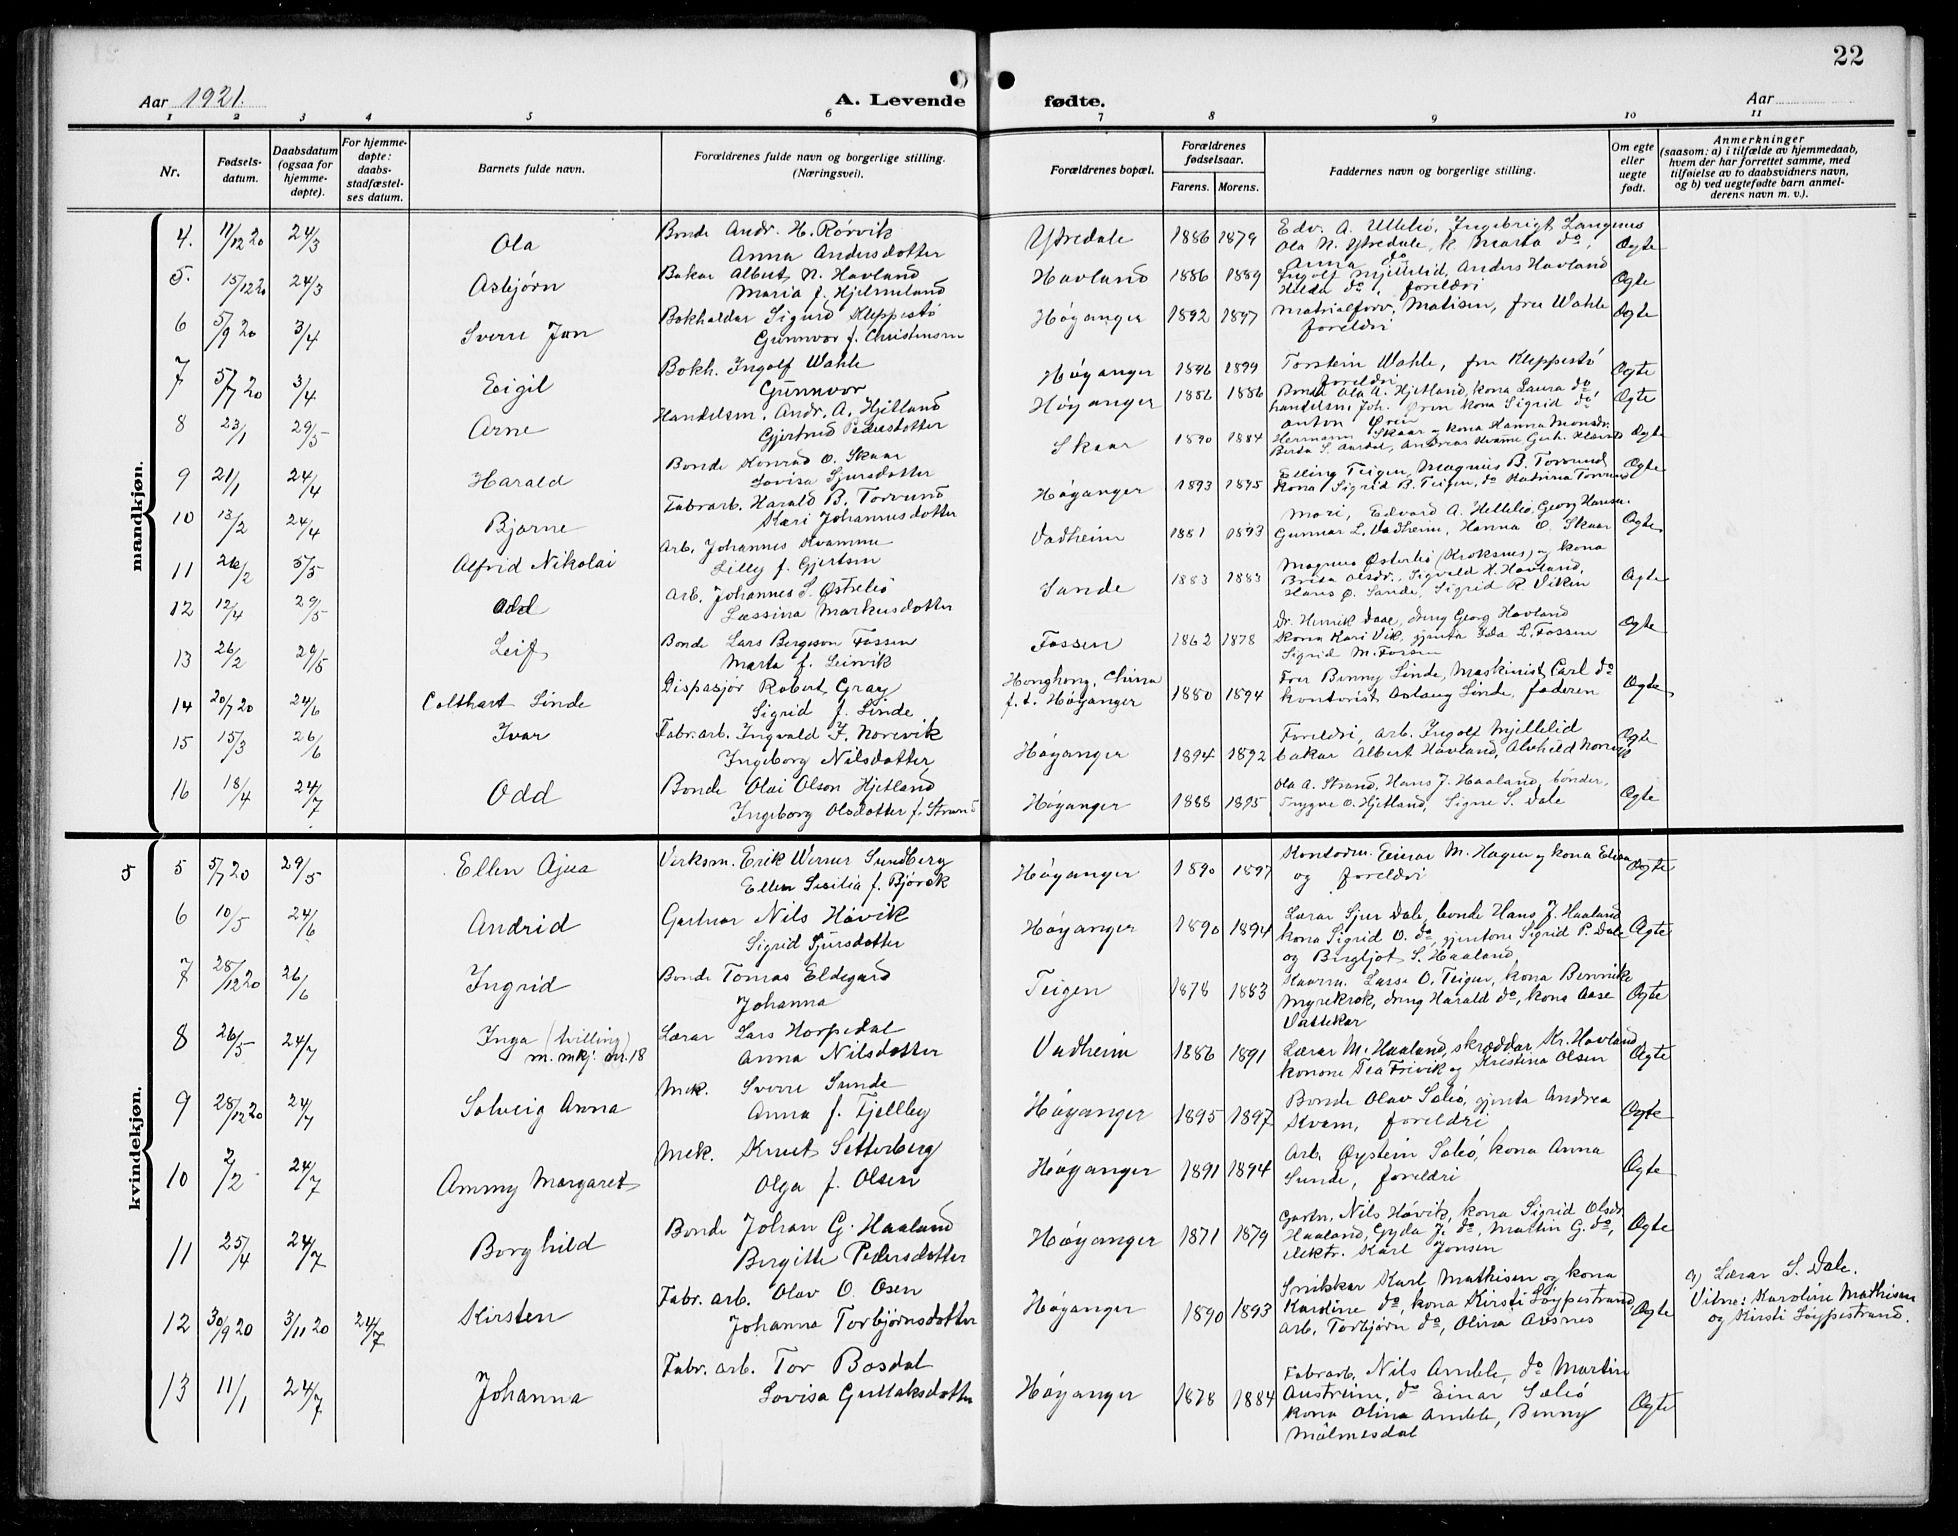 22
Aar 1921.
A. Levende fødte.
Aar
1 2 3 4 5 6 7 8 9 10 11
Nr.
Fødsels-
datum.
Daabsdatum
(ogsaa for
hjemme-
døpte).
For hjemme-
døpte:
daabs-
stadfæstel-
ses datum.
Barnets fulde navn.
Forældrenes fulde navn og borgerlige stilling.
(Næringsvei).
Forældrenes bopæl.
Forældrenes
fødselsaar.
Farens. Morens.
Faddernes navn og borgerlige stilling.
Om egte
eller
uegte
født.
Anmerkninger
(saasom: a) i tilfælde av hjemmedaab,
hvem der har forrettet samme, med
tilføielse av to daabsvidners navn,
og b) ved uegtefødte barn anmel-
derens navn m. v.).
mandkjøn.
4. 11/12 20 24/3 Ola
Bonde Andr. H. Rørvik
Anna Andersdotter
Ytredale 1886 1879
Edv. A. Ullebø, Ingebrigt Langenes
Ola N. Ytredale, k. Marta do,
Anna do
Ægte
5. 15/12 20 24/3 Asbjørn
Bakar Albert N. Havland
Maria f. Hjelmeland
Havland 1886 1889
Ingolf Mjellelid, Anders Hovland
Hilda do, foreldri
Ægte
6 5/9 20 3/4 Sverre Jan
Bokhaldar Sigurd Kleppestø
Gunnvor f. Christensen
Høyanger 1892 1897
Matrialforv. Matisen, fru Wahle
foreldri
Ægte
7 5/7 20 3/4 Eigil
Bokh. Ingolf Wahle
Gunnvor
Høyanger 1896 1899
Torstein Wahle, fru Kleppestø
foreldri
Ægte
8 23/1 29/5 Arne
Handelsm. Andr. A. Hjetland
Gjertrud Pedersdotter
Høyanger 1886 1886
Bonde Ola A. Hjetland, kona Laura do,
handelsm. Joh. Øren kona Sigrid do,
Anton Øren
Ægte
9 21/1 24/4 Harald
Bonde Konrad O. Skaar
Lovisa Sjursdotter
Skaar 1890 1884
Hermann Skaar og kona Hanna Monsdr.
Berta S. Aardal, Andreas Kvamme
Ægte
10 13/2 24/4 Bjarne
Fabrarb. Harald B. Torvund
Kari Johannesdotter
Høyanger 1893 1895
Elling Teigen, Magnus B. Torvund
kona Sigrid B. Teigen, do Katrina Torvund
Ægte
11 26/2 5/5 Alfrid Nikolai
Arb. Johannes Kvamme
Lilly f. Gjertsen
Vadheim 1881 1893
Mari, Edvard A. Hellebø, Georg Hansen.
Gunnar L. Vadheim, Hanna O. Skaar
Ægte
12 12/4 29/5 Odd
Arb. Johannes S. Østrebø
Lassina Markusdotter
Sande 1883 1883
Magnus Østerbø (Kroksnes) og kona
Brita Olsdr., Sigvald H. Hovland,
Hans O. Sande, Sigrid R. Viken
Ægte
13 26/2 29/5 Leif
Bonde Lars Bergeson Fossen
Marta f. Leirvik
Fossen 1862 1878
Dr. Henrik Daae, dreng Georg Hovland
Kona Kari Vik, gjenta Ida L. Fossen
Sigrid M. Fossen
Ægte
14 20/7 20 24/6 Colthart Linde
Dispasjør Robert Gray
Sigrid f. Linde
Honghong, China
f. t. Høyanger 1880 1894
Fru Benny Linde, Maskinist Carl do
kontorist Aslaug Linde, faderen
Ægte
15 15/3 26/6 Ivar
Fabr. arb. Ingvald J. Norevik
Ingeborg Nilsdotter
Høyanger 1894 1892
Foreldri, arb. Ingolf Mjellelid
bakar Albert Hovland, Alvhild Norevik
Ægte
16 18/4 24/7 Odd
Bonde Olai Olson Hjetland
Ingeborg Olsdotter f. Strand
Høyanger 1888 1895
Ola A. Strand, Hans J. Haaland, bønder,
Trygve O. Hjetland, Signe S. Dale
Ægte
kvindekjøn.
5
5 5/7 20 29/5 Ellen Ajua
Verksm. Erik Werner Sundberg
Ellen Sesilia f. Bjørck
Høyanger 1890 1897
Kontorm. Einar M. Hagen og kona Elisa
og foreldri
Ægte
6 10/5 24/6 Andrid
Gartnar Nils Høvik
Sigrid Sjursdotter
Høyanger 1890 1894
Lærar Sjur Dale, bonde Hans J. Haaland
kona Sigrid O. do, gjentone Sigrid P. Dale
og Bergljot S. Haaland
Ægte
7 28/12 20 26/6 Ingrid
Bonde Tomas Eldegard
Johanna
Teigen 1878 1883
Kaarm. Lasse O. Teigen, kona Bennike
Myrekrok, dreng Harald do, kona Aase
Vattekar
Ægte
8 26/5 24/7 Inga (tvilling)
m. mkj. nr. 18
Lærar Lars Horpedal
Anna Nilsdotter
Vadheim 1886 1891
Lærar M. Haaland, skræddar Kr. Hovland
konone Tea Frivik og Kristina Olsen
Ægte
9 28/12 20 24/7 Solveig Anna
Mek. Sverre Sunde
Anna f. Fjellby
Høyanger 1895 1897
Bonde Olav Sæbø, gjenta Andrea
Kvam, foreldri
Ægte
10 2/2 24/7 Ammy Margaret
Mek. Knut Setterberg
Olga f. Olsen
Høyanger 1891 1894
Arb. Øystein Sæbø, kona Anna
Sunde, foreldri
Ægte
11 25/4 24/7 Borghild
Bonde Johan G. Haaland
Bergitte Pedersdotter
Høyanger 1871 1879
Gartn. Nils Høvik, kona Sigrid Olsdr
Haaland, Gyda J. do, Martin G. do,
elektr. Karl Jonsen
Ægte
12 30/9 20 3/11 20 24/7 Kirsten
Fabr. arb. Olav O. Osen
Johanna Torbjørnsdotter
Høyanger 1890 1893
Snikkar Karl Mathisen og kona
Karoline do, kona Kirsti Løypestrand
Arb. Torbjørn do, Olina Aresnes
Ægte
a) Lærar S. Dale.
Vitne: Karoline Mathisen
og Kirsti Løypestrand.
13 11/1 24/7 Johanna
Fabr. arb. Tor Bosdal
Lovisa Gullaksdotter
Høyanger 1878 1884
Fabrarb. Nils Amble, do Martin
Austreim, do Einar Sæbø
kona Olina Amble, Benny
Målmesdal
Ægte